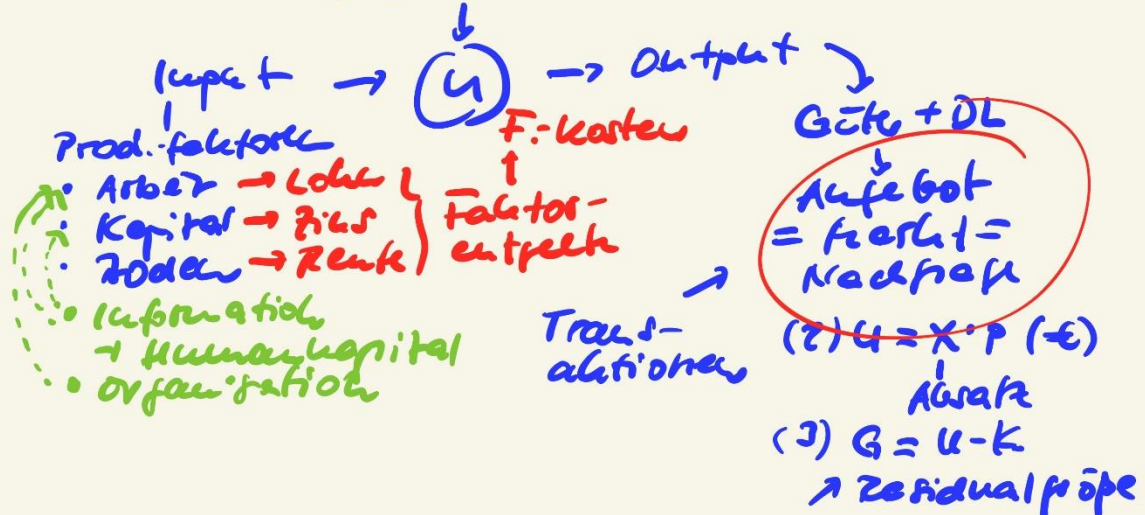 Input → U → Output
Prod.-faktoren
F.-kosten
• Arbeit → Lohn
• Kapital → Zins
• Boden → Rente
} Faktor-
entgelte
• Information
→ Humankapital
• Organisation
Güter + DL
Angebot
= Markt =
Nachfrage
Trans-
aktionen
(2) U = X · P (€)
Absatz
(3) G = U - K
↗ Residualgröße